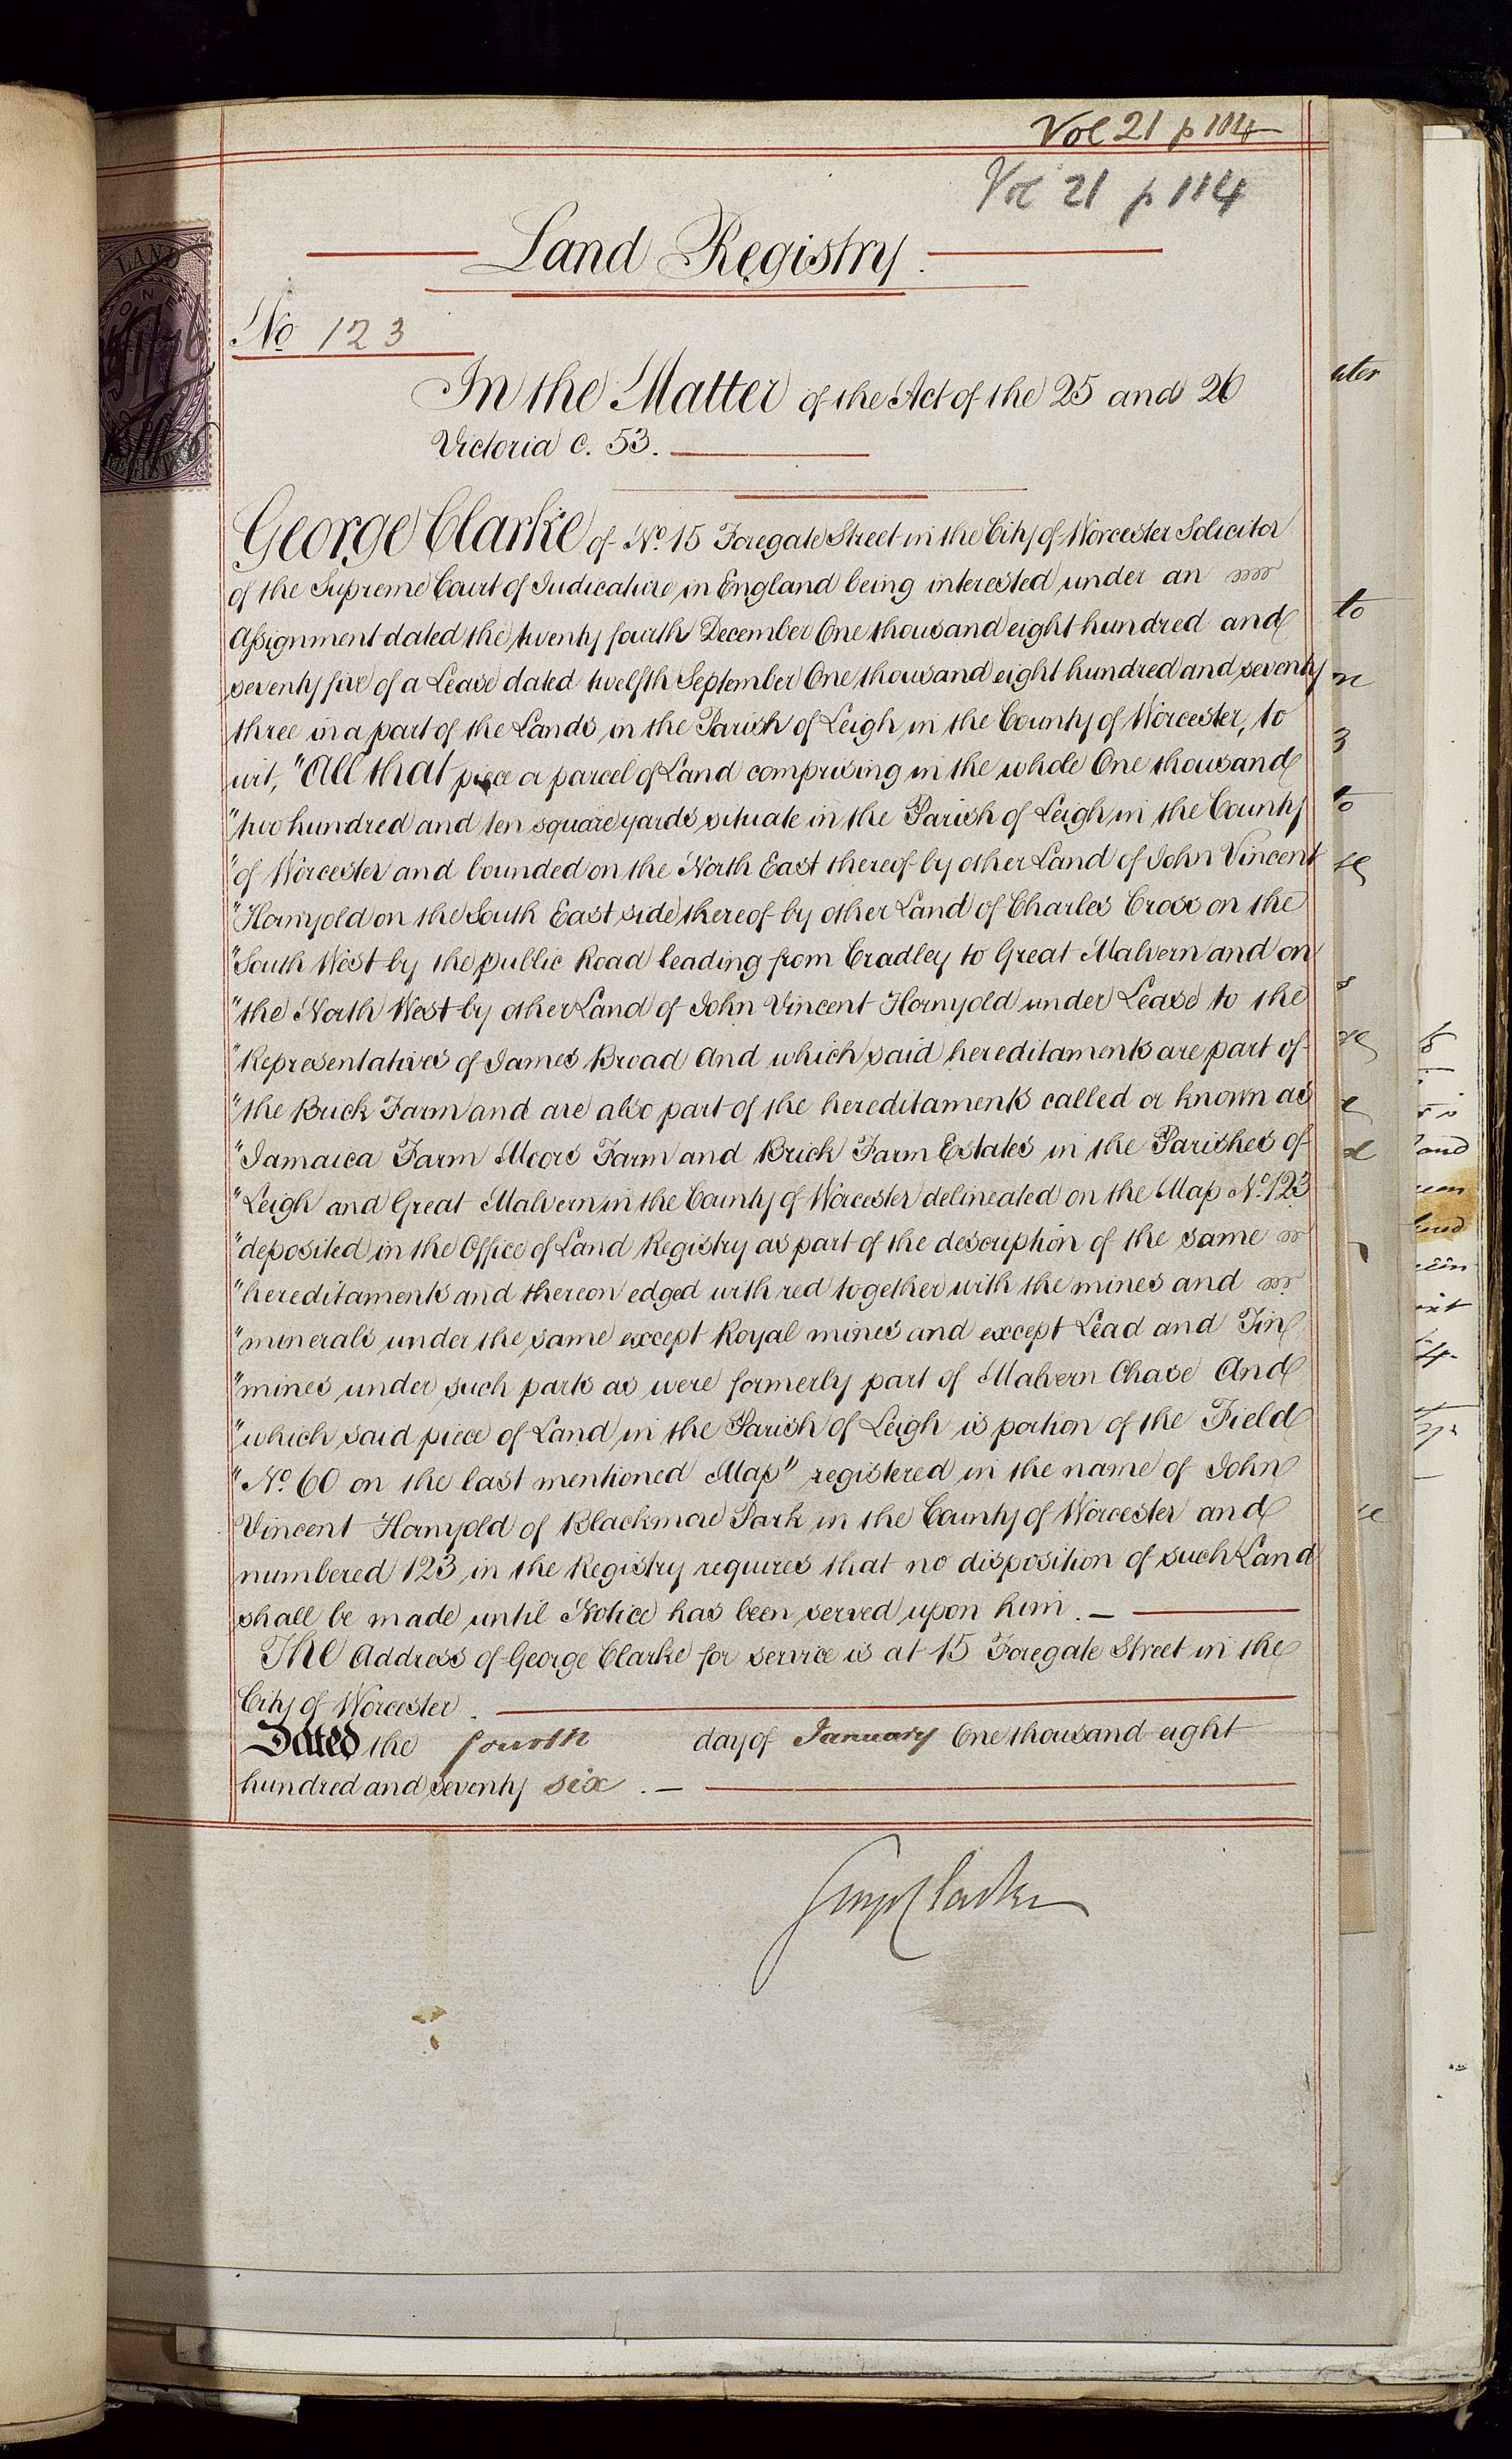 Vol 21 p 114
Vol 21 p 114
Land Registry.
LAND
No 123
In the Matter of the Act of the 25 and 26
Victoria c. 53.
George Clarke of No. 15 Foregate Street in the City of Worcester Solicitor
of the Supreme Court of Judicature in England being interested under an
Assignment dated the twenty fourth December One thousand eight hundred and
seventy five of a Lease dated twelfth September One thousand eight hundred and seventy
three in a part of the Lands in the Parish of Leigh in the County of Worcester, to
wit, "All that piece or parcel of Land comprising in the whole One thousand
"two hundred and ten square yards situate in the Parish of Leigh in the County
"of Worcester and bounded on the North East thereof by other Land of John Vincent
"Hornyold on the South East side thereof by other Land of Charles Cross on the
"South West by the public Road leading from Cradley to Great Malvern and on
"the North West by other Land of John Vincent Hornyold under Lease to the
"Representatives of James Broad and which said hereditaments are part of
"the Brick Farm and are also part of the hereditaments called or known as
"Jamaica Farm Moors Farm and Brick Farm Estates in the Parishes of
"Leigh and Great Malvern in the County of Worcester delineated on the Map No. 123
"deposited in the Office of Land Registry as part of the description of the same
"hereditaments and thereon edged with red together with the mines and
"minerals under the same except Royal mines and except Lead and Tin
"mines under such parts as were formerly part of Malvern Chase And
"which said piece of Land in the Parish of Leigh is portion of the Field
"No. 60 on the last mentioned Map" registered in the name of John
Vincent Hornyold of Blackmore Park in the County of Worcester and
numbered 123 in the Registry requires that no disposition of such Land
shall be made until Notice has been served upon him.
The Address of George Clarke for service is at 15 Foregate Street in the
City of Worcester.
Dated the fourth day of January One thousand eight
hundred and seventy six.
George Clarke